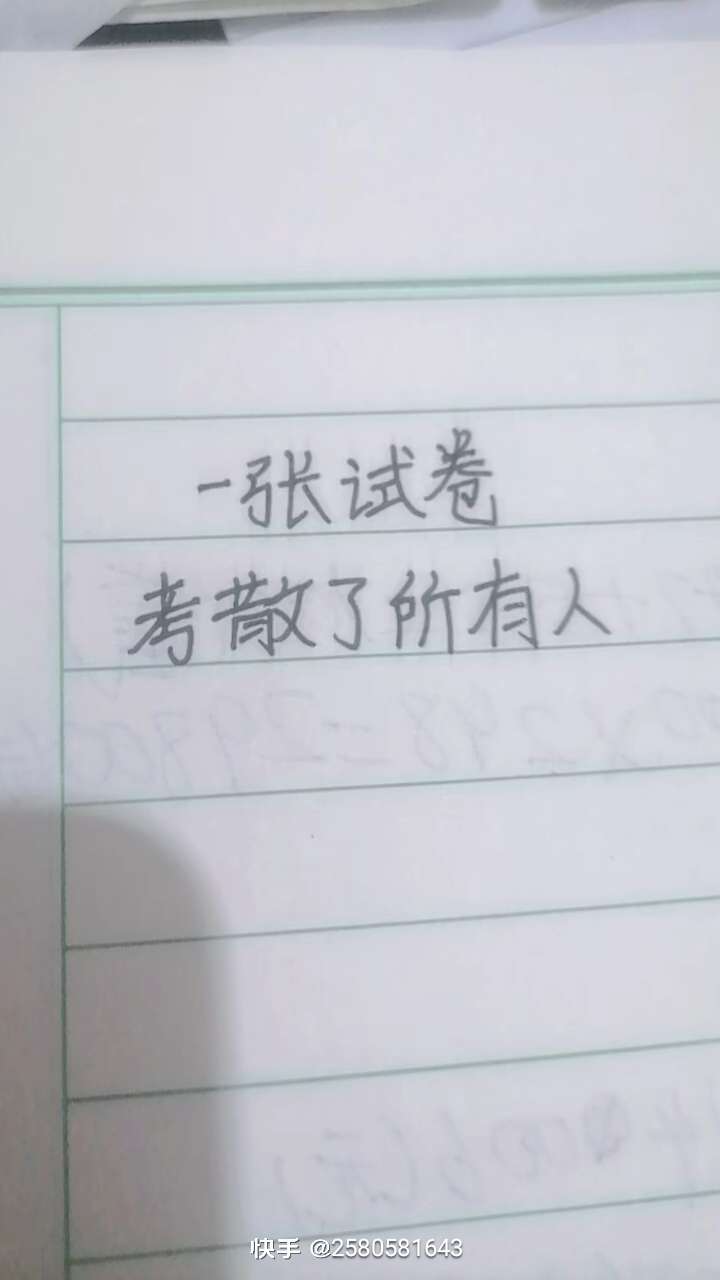 一张试卷
考散了所有人
快手 @2580581643